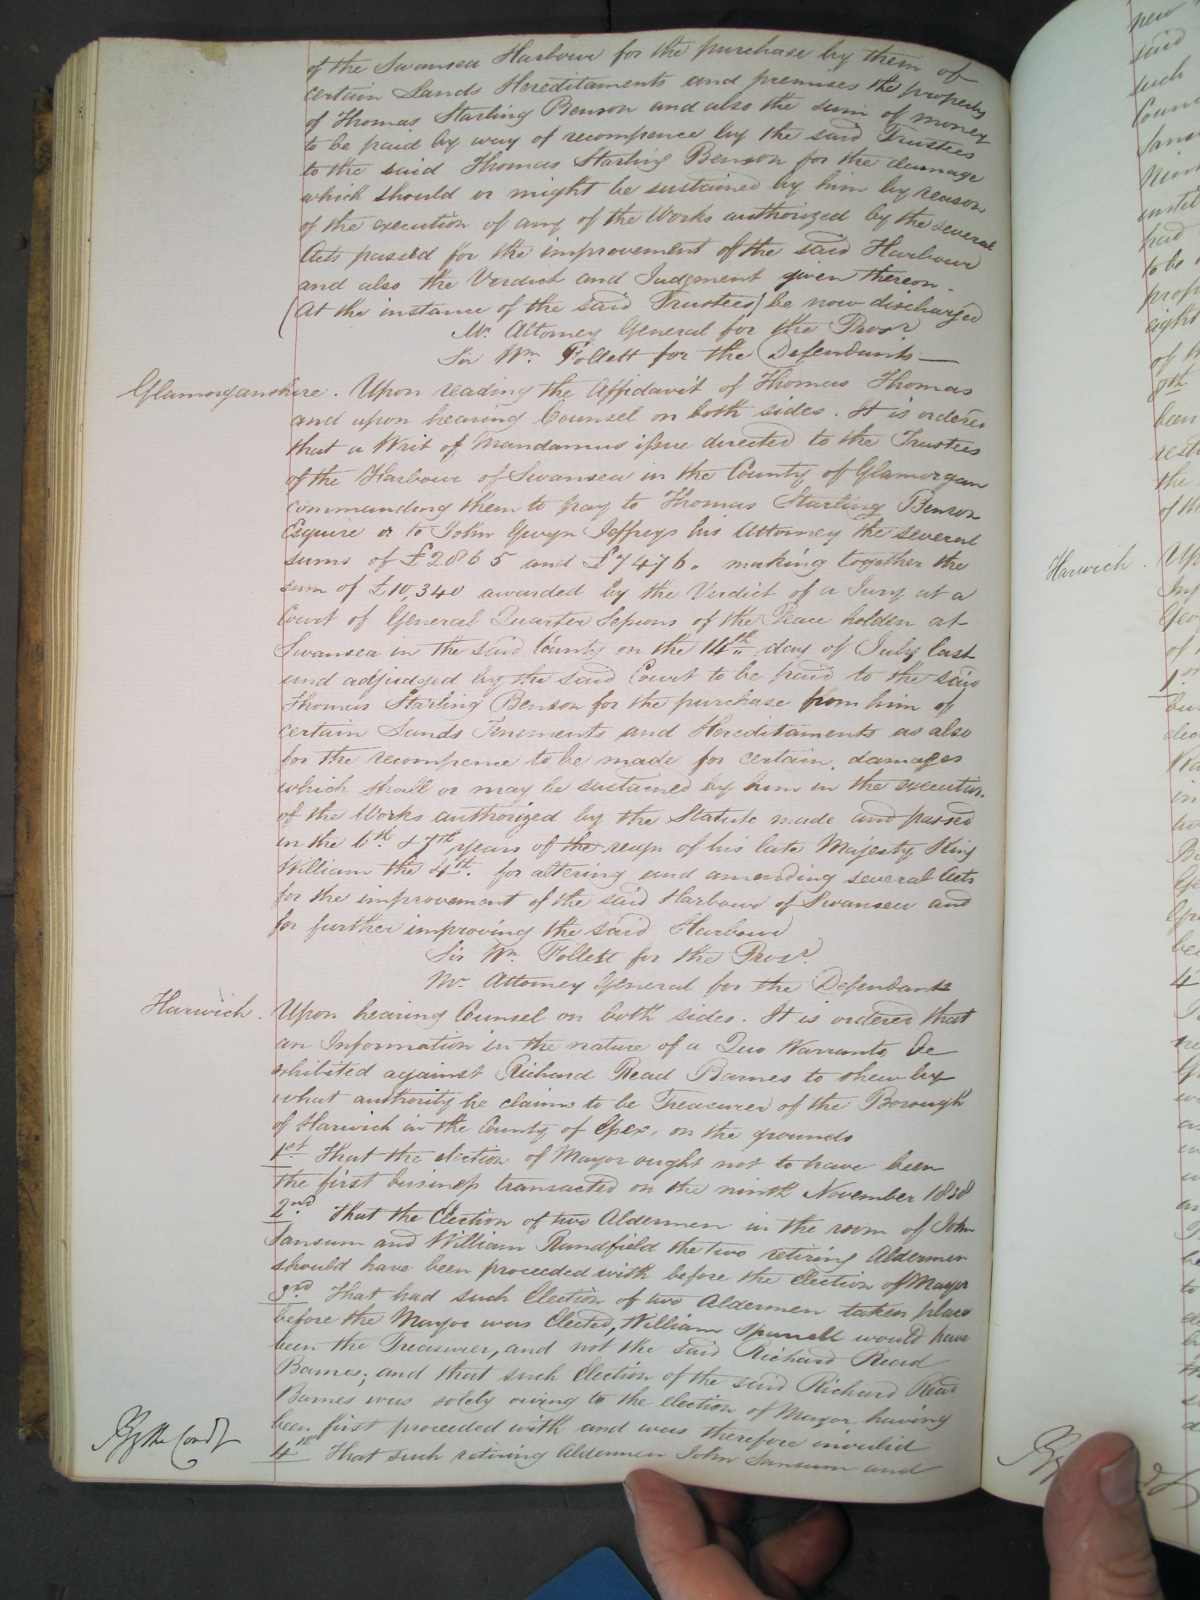 of the Swansea Harbour for the purchase by them of
certain Lands Hereditaments and premises the property
of Thomas Starling Benson and also the sum of money
to be paid by way of recompence by the said Trustees
to the said Thomas Starling Benson for the damage
which should or might be sustained by him by reason
of the execution of any of the Works authorized by the several
Acts passed for the improvement of the said Harbour
and also the Verdict and Judgment given thereon.
(At the instance of the said Trustees) be now discharged
Mr. Attorney General for the Prosr.
Sir Wm. Follett for the Defendants —
Glamorganshire. Upon reading the Affidavit of Thomas Thomas
and upon hearing Counsel on both sides. It is ordered
that a Writ of Mandamus issue directed to the Trustees
of the Harbour of Swansea in the County of Glamorgan
commanding them to pay to Thomas Starling Benson
Esquire or to John Gwyn Jeffreys his Attorney the several
sums of £2865 and £7476. making together the
sum of £10,340 awarded by the Verdict of a Jury at a
Court of General Quarter Sessions of the Peace holden at
Swansea in the said County on the 14th day of July last
and adjudged by the said Court to be paid to the said
Thomas Starling Benson for the purchase from him of
certain Lands Tenements and Hereditaments as also
for the recompence to be made for certain damages
which shall or may be sustained by him in the execution
of the Works authorized by the Statute made and passed
in the 6th. & 7th years of the reign of his late Majesty King
William the 4th. for altering and amending several Acts
for the improvement of the said Harbour of Swansea and
for further improving the said Harbour
Sir Wm. Follett for the Prosr.
Mr. Attorney General for the Defendants
Harwich. Upon hearing Counsel on both sides. It is ordered that
an Information in the nature of a Quo Warranto be
exhibited against Richard Read Barnes to shew by
what authority he claims to be Treasurer of the Borough
of Harwich in the County of Essex, on the grounds
1st That the election of Mayor ought not to have been
the first business transacted on the ninth November 1838
2nd. That the Election of two Aldermen in the room of John
Sansum and William Randfield the two retiring Aldermen
should have been proceeded with before the Election of Mayor
3rd That had such Election of two Aldermen taken place
before the Mayor was Elected, William Spurrell would have
been the Treasurer, and not the said Richard Read
Barnes; and that such Election of the said Richard Read
Barnes was solely owing to the Election of Mayor having
been first proceeded with and was therefore invalid
4th That such retiring Aldermen John Sansum and
By the Court
Harwich.